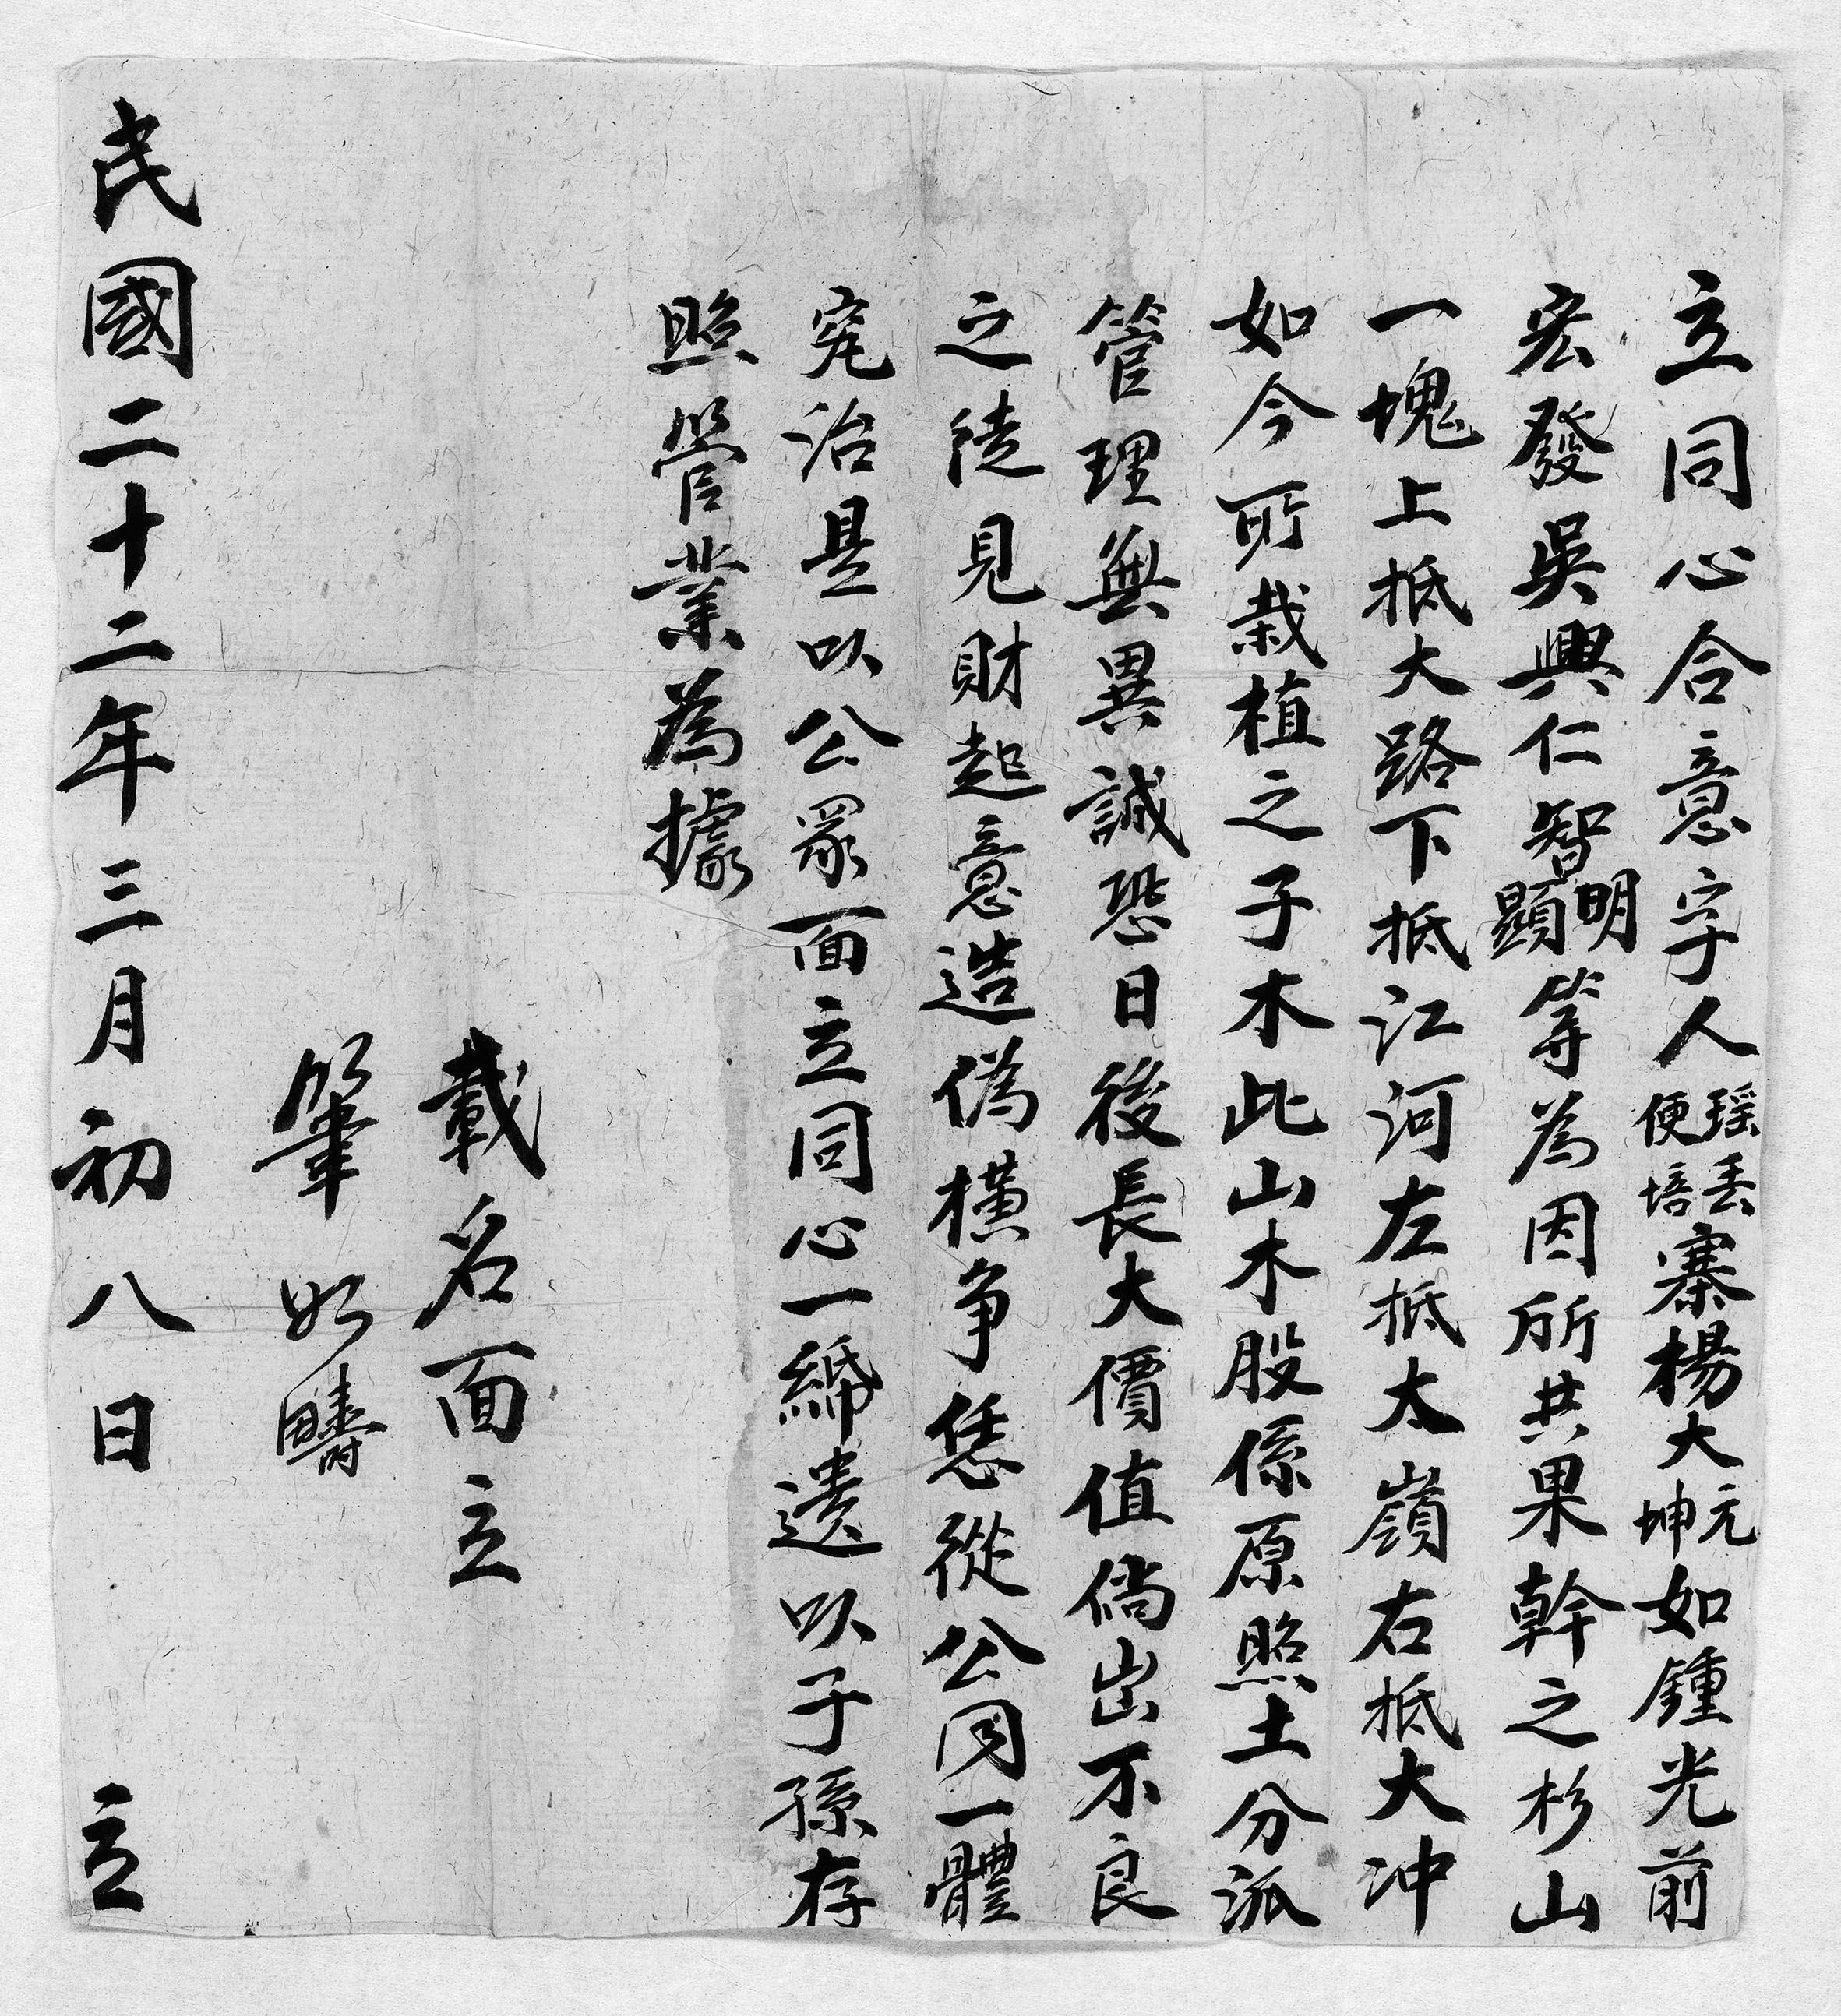 立同心合意字人瑶丟便培寨楊大元坤如鍾光前
宏發吳興仁智明顯等為因所共果幹之杉山
一塊上抵大路下抵江河左抵太嶺右抵大冲
如今所栽植之子木此山木股係原照土分派
管理無異誠恐日後長大價值倘出不良
之徒見財起意造偽橫争恁從公同一體
究治是以公眾面立同心一締遗以子孫存
照管業為據
載名面立
筆如疇
民國二十二年三月初八日 立